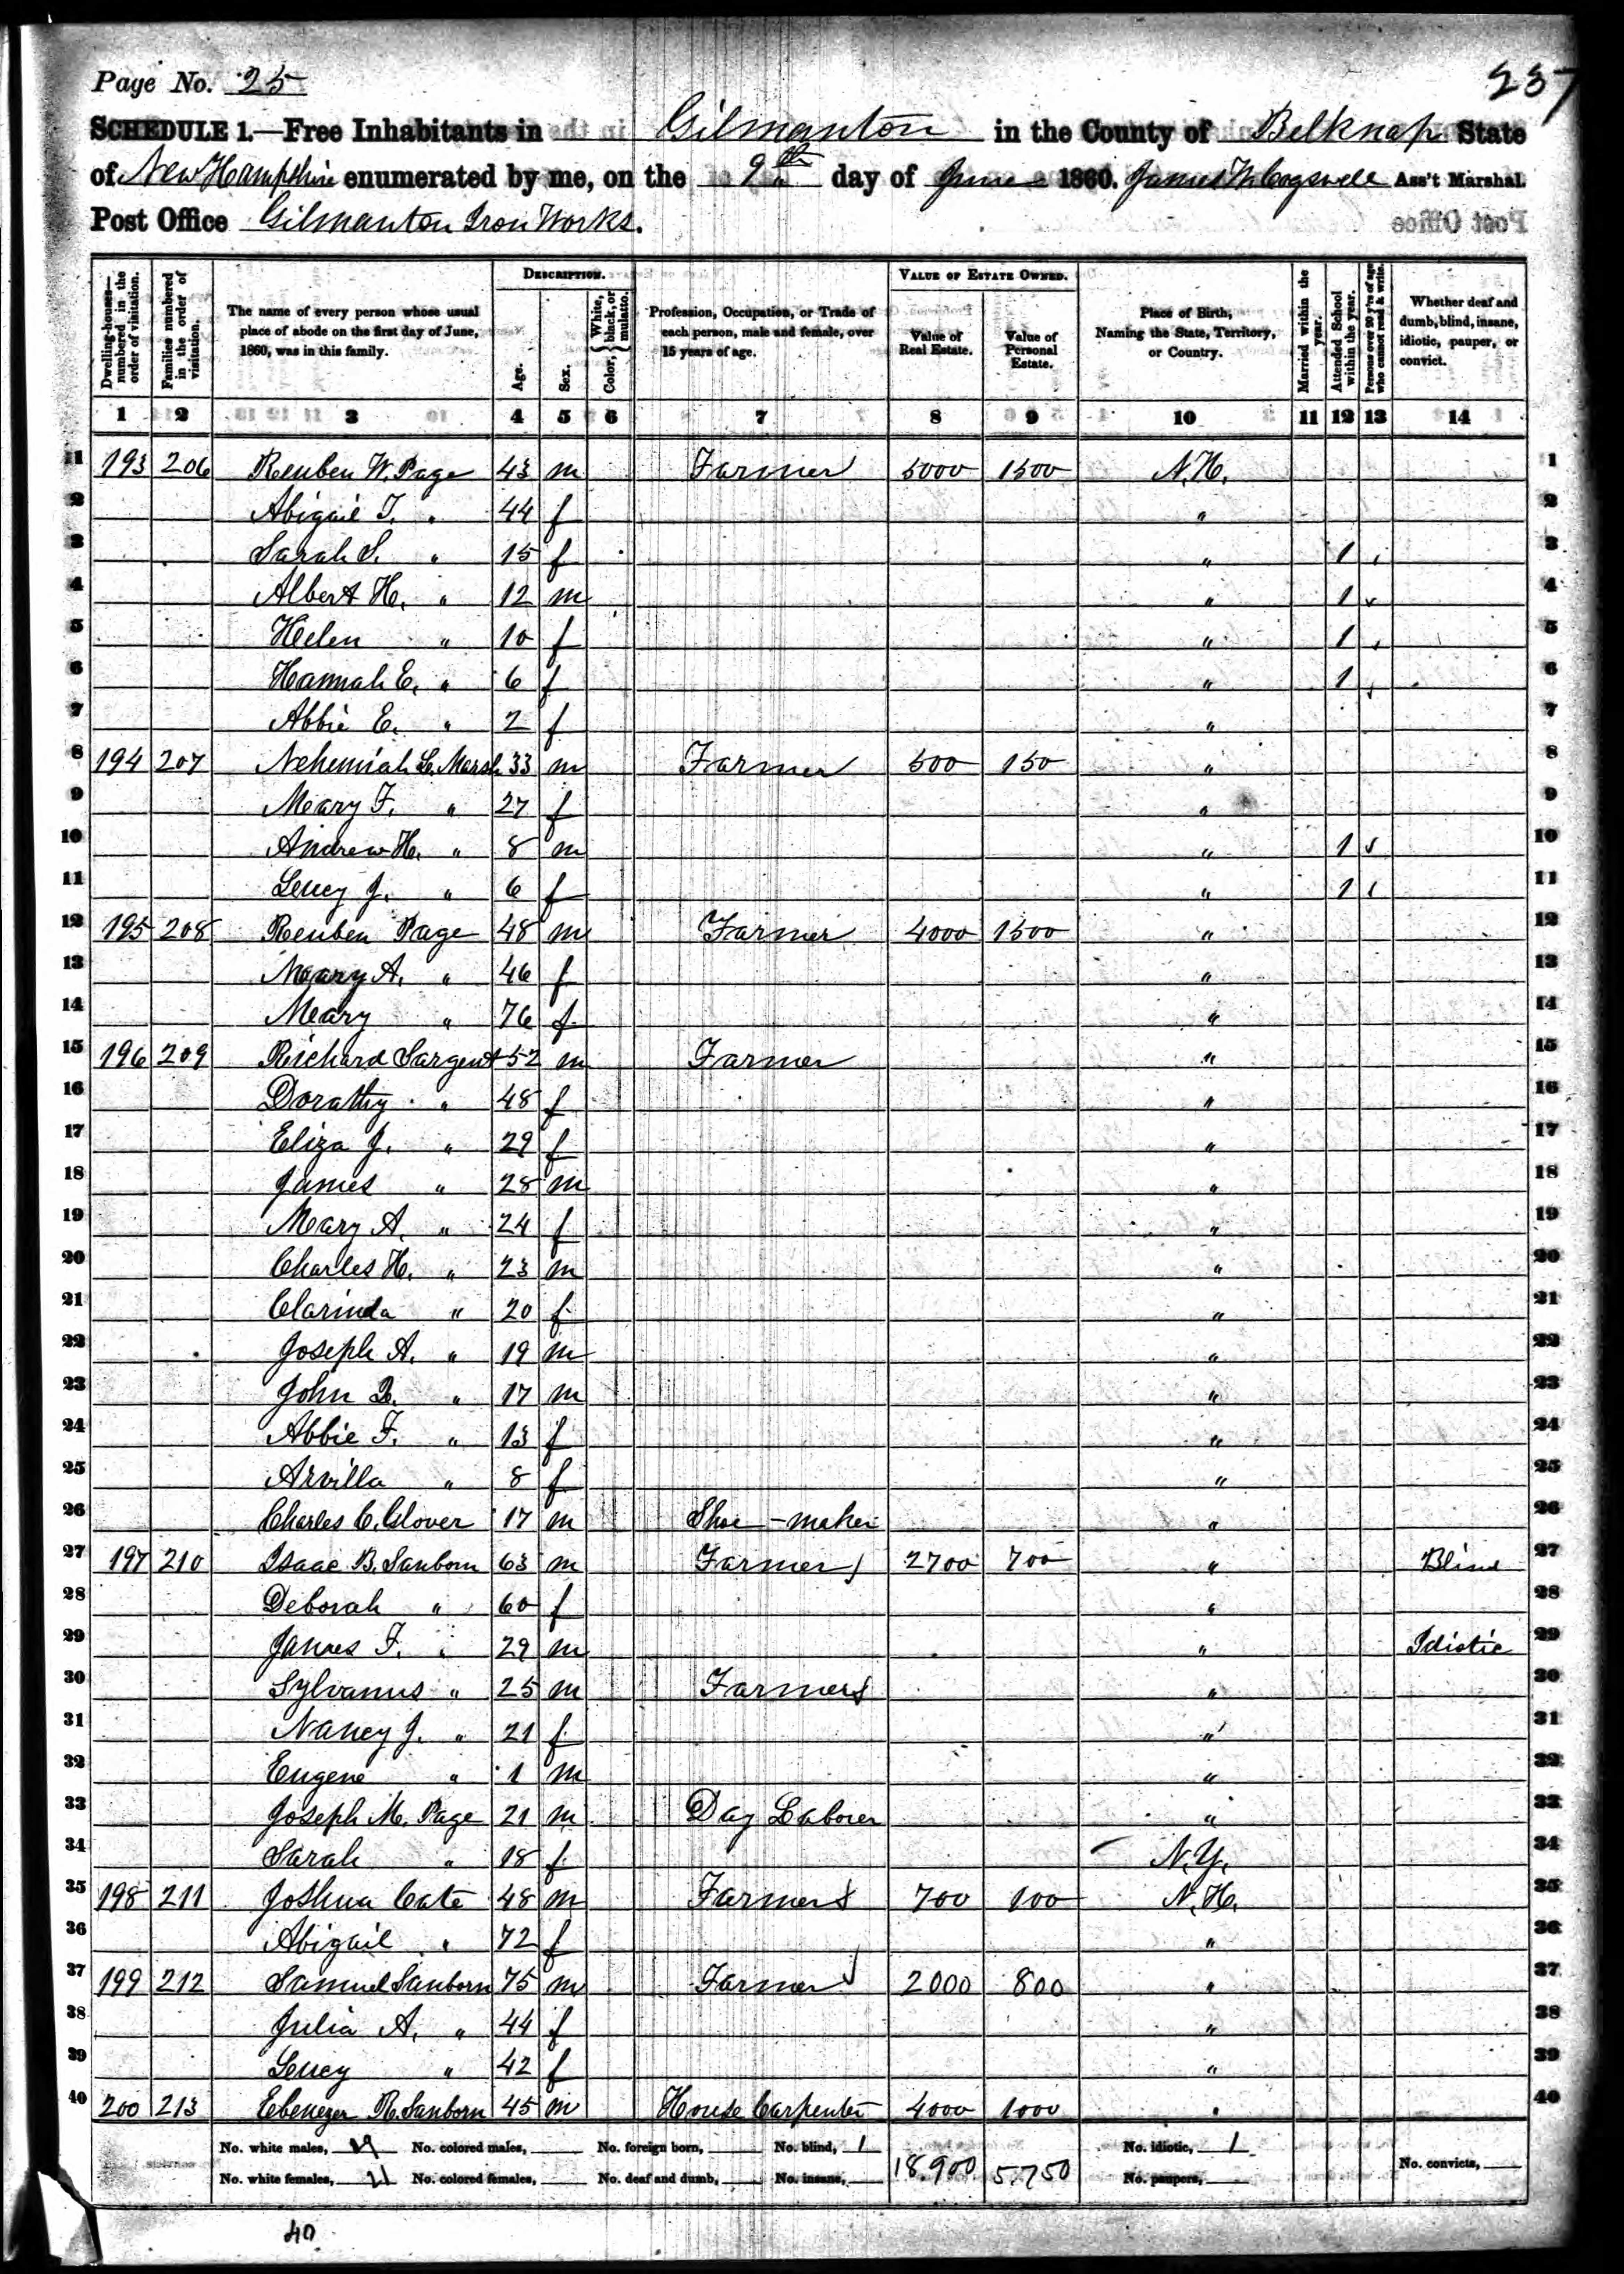 Page No. 25
237
SCHEDULE 1.—Free Inhabitants in Gilmanton in the County of Belknap State
of New Hampshire enumerated by me, on the 9th day of June 1860. James W Cogswell Ass't Marshal.
Post Office Gilmanton Iron Works.
Dwelling-houses—numbered in the order of visitation. Families numbered in the order of visitation. The name of every person whose usual place of abode on the first day of June, 1860, was in this family. DESCRIPTION. Age. Sex. Color, {White, black, or mulatto. Profession, Occupation, or Trade of each person, male and female, over 15 years of age. VALUE OF ESTATE OWNED. Value of Real Estate. Value of Personal Estate. Place of Birth, Naming the State, Territory, or Country. Married within the year. Attended School within the year. Persons over 20 y'rs of age who cannot read & write. Whether deaf and dumb, blind, insane, idiotic, pauper, or convict.
1 2 3 4 5 6 7 8 9 10 11 12 13 14
1 193 206 Reuben W. Page 43 m Farmer 5000 1500 N.H. 1
2 Abigail T. " 44 f " 2
3 Sarah S. " 15 f " 1 3
4 Albert H. " 12 m " 1 4
5 Helen " 10 f " 1 5
6 Hannah E. " 6 f " 1 6
7 Abbie E. " 2 f " 7
8 194 207 Nehemiah L. Marsh 33 m Farmer 500 150 " 8
9 Mary F. " 27 f " 9
10 Andrew H. " 8 m " 1 10
11 Lucy J. " 6 f " 1 11
12 195 208 Reuben Page 48 m Farmer 4000 1500 " 12
13 Mary A. " 46 f " 13
14 Mary " 76 f " 14
15 196 209 Richard Sargent 52 m Farmer " 15
16 Dorathy " 48 f " 16
17 Eliza J. " 29 f " 17
18 James " 28 m " 18
19 Mary A. " 24 f " 19
20 Charles H. " 23 m " 20
21 Clarinda " 20 f " 21
22 Joseph A. " 19 m " 22
23 John " 17 m " 23
24 Abbie F. " 13 f " 24
25 Arvilla " 8 f " 25
26 Charles C. Glover 17 m Shoe-maker " 26
27 197 210 Isaac B. Sanborn 63 m Farmer 2700 700 " Blind 27
28 Deborah " 60 f " 28
29 James F. " 29 m " Idiotic 29
30 Sylvanus " 25 m Farmer " 30
31 Nancy J. " 21 f " 31
32 Eugene " 1 m " 32
33 Joseph M. Page 21 m Day Laborer " 33
34 Sarah " 18 f N.Y. 34
35 198 211 Joshua Cate 48 m Farmer 700 100 N.H. 35
36 Abigail " 72 f " 36
37 199 212 Samuel Sanborn 75 m Farmer 2000 800 " 37
38 Julia A. " 44 f " 38
39 Lucy " 42 f " 39
40 200 213 Ebenezer R. Sanborn 45 m House Carpenter 4000 1000 " 40
No. white males, 19 No. colored males, No. foreign born, No. blind, 1 18.900 5.750 No. idiotic, 1 No. convicts,
No. white females, 21 No. colored females, No. deaf and dumb, No. insane, No. paupers,
40